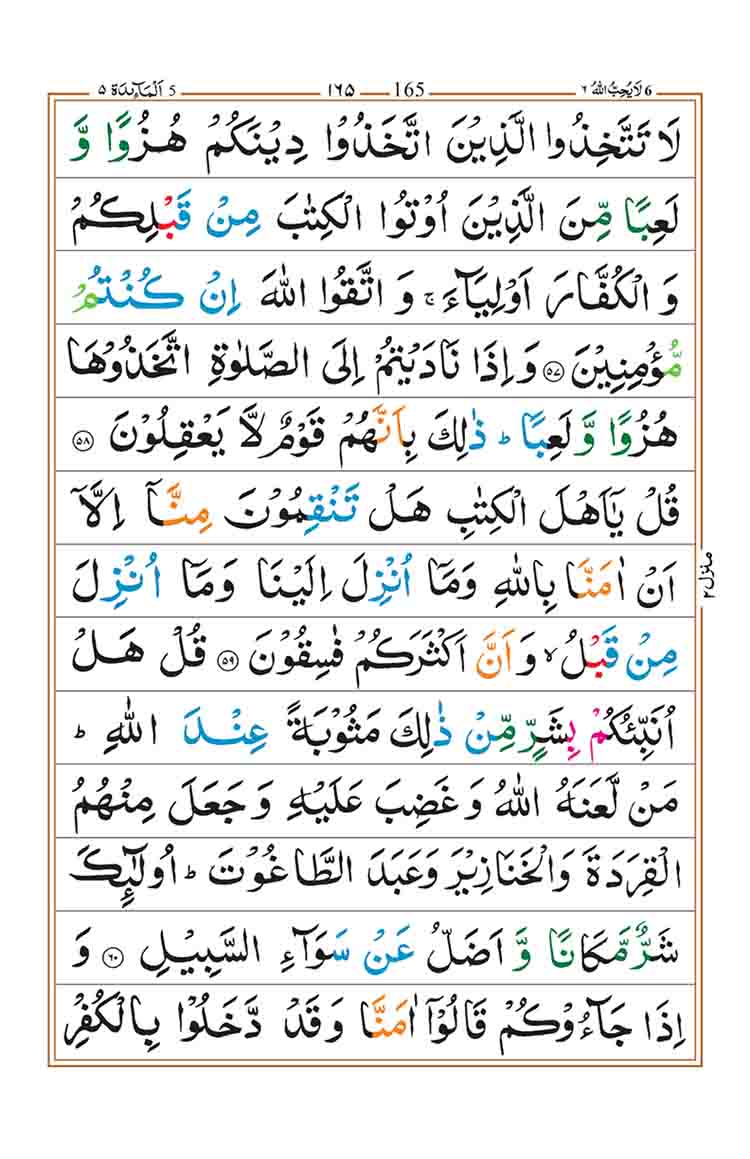 6 لَا يُحِبُّ اللهُ ٦ 165 ١٦٥ 5 اَلْمَآئِدَة ٥
لَا تَتَّخِذُوا الَّذِيْنَ اتَّخَذُوْا دِيْنَكُمْ هُزُوًا وَّ
لَعِبًا مِّنَ الَّذِيْنَ اُوْتُوا الْكِتٰبَ مِنْ قَبْلِكُمْ
وَ الْكُفَّارَ اَوْلِيَآءَ ۚ وَ اتَّقُوا اللّٰهَ اِنْ كُنْتُمْ
مُّؤْمِنِيْنَ ۝٥٧ وَ اِذَا نَادَيْتُمْ اِلَى الصَّلٰوةِ اتَّخَذُوْهَا
هُزُوًا وَّ لَعِبًا ؕ ذٰلِكَ بِاَنَّهُمْ قَوْمٌ لَّا يَعْقِلُوْنَ ۝٥٨
قُلْ يٰۤاَهْلَ الْكِتٰبِ هَلْ تَنْقِمُوْنَ مِنَّاۤ اِلَّاۤ
اَنْ اٰمَنَّا بِاللّٰهِ وَمَاۤ اُنْزِلَ اِلَيْنَا وَمَاۤ اُنْزِلَ
مِنْ قَبْلُ ۙ وَ اَنَّ اَكْثَرَكُمْ فٰسِقُوْنَ ۝٥٩ قُلْ هَلْ
اُنَبِّئُكُمْ بِشَرٍّ مِّنْ ذٰلِكَ مَثُوْبَةً عِنْدَ اللّٰهِ ؕ
مَنْ لَّعَنَهُ اللّٰهُ وَ غَضِبَ عَلَيْهِ وَ جَعَلَ مِنْهُمُ
الْقِرَدَةَ وَالْخَنَازِيْرَ وَعَبَدَ الطَّاغُوْتَ ؕ اُولٰٓئِكَ
شَرٌّ مَّكَانًا وَّ اَضَلُّ عَنْ سَوَآءِ السَّبِيْلِ ۝٦٠ وَ
اِذَا جَآءُوْكُمْ قَالُوْۤا اٰمَنَّا وَ قَدْ دَّخَلُوْا بِالْكُفْرِ
منزل ٢